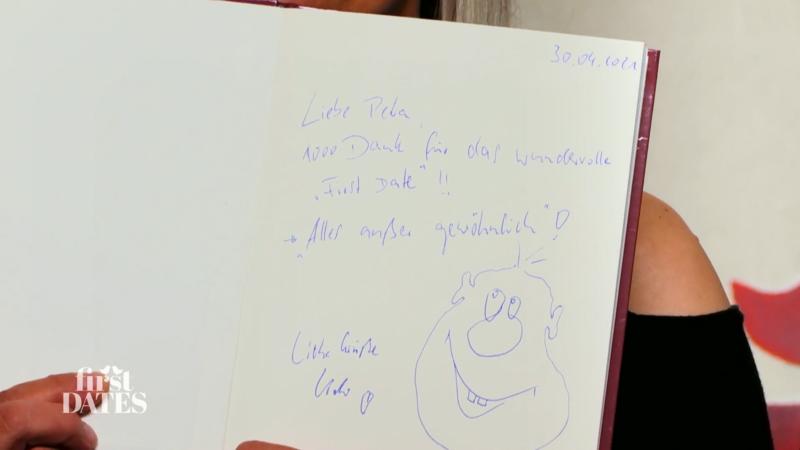 30.04.2021
Liebe Petra,
1000 Dank für das wundervolle
„First Date“ !!
→ „Alles außer gewöhnlich“!
Liebe Grüße
first
DATES